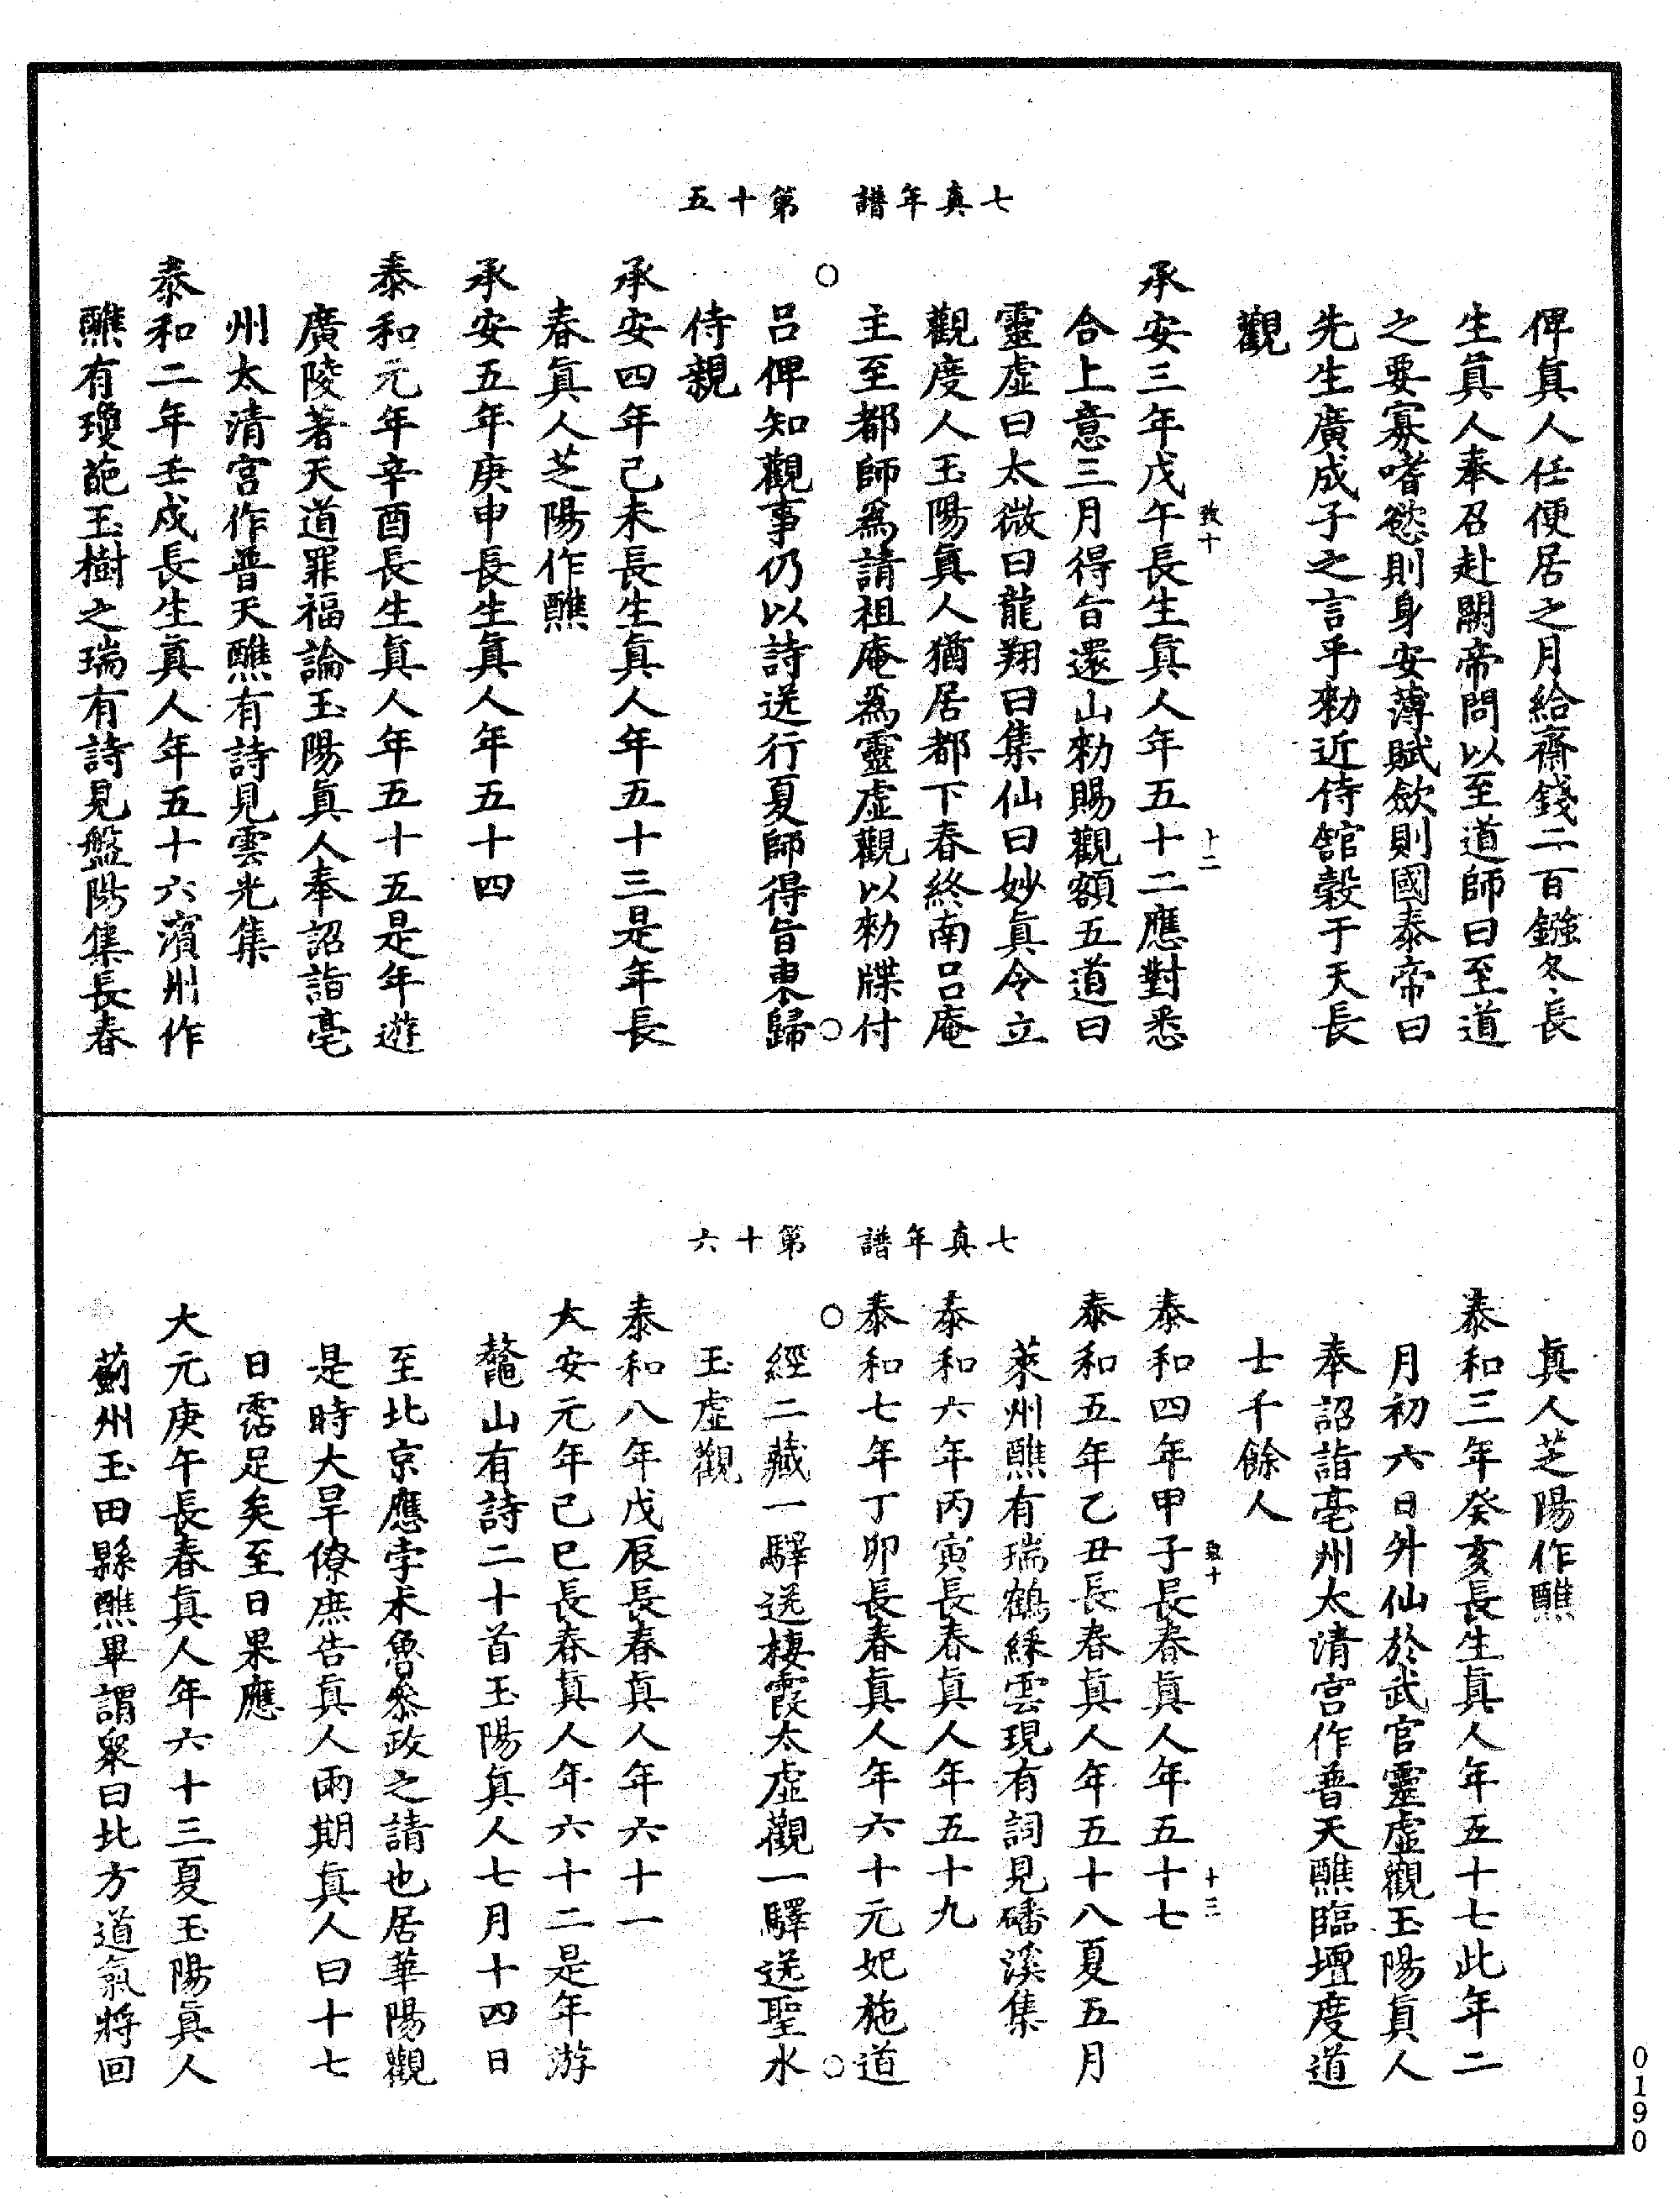 七真年譜　第十五
俾真人任便居之月給齋錢二百鏹冬長
生真人奉召赴闕帝問以至道師曰至道
之要寡嗜慾則身安薄賦斂則國泰帝曰
先生廣成子之言乎勑近侍館穀于天長
觀
致十　十二
承安三年戊午長生真人年五十二應對悉
合上意三月得旨還山勑賜觀額五道曰
靈虛曰太微曰龍翔曰集仙曰妙真令立
觀度人玉陽真人猶居都下春終南呂庵
主至都師為請祖庵為靈虛觀以勑牒付
呂俾知觀事仍以詩送行夏師得旨東歸
侍親
承安四年己未長生真人年五十三是年長
春真人芝陽作醮
承安五年庚申長生真人年五十四
泰和元年辛酉長生真人年五十五是年遊
廣陵著天道罪福論玉陽真人奉詔詣亳
州太清宮作普天醮有詩見雲光集
泰和二年壬戌長生真人年五十六濱州作
醮有瓊葩玉樹之瑞有詩見盤陽集長春
七真年譜　第十六
真人芝陽作醮
泰和三年癸亥長生真人年五十七此年二
月初六日升仙於武官靈虛觀玉陽真人
奉詔詣亳州太清宮作普天醮臨壇度道
士千餘人
致十　十三
泰和四年甲子長春真人年五十七
泰和五年乙丑長春真人年五十八夏五月
萊州醮有瑞鶴綵雲現有詞見磻溪集
泰和六年丙寅長春真人年五十九
泰和七年丁卯長春真人年六十元妃施道
經二藏一驛送棲霞太虛觀一驛送聖水
玉虛觀
泰和八年戊辰長春真人年六十一
大安元年己巳長春真人年六十二是年游
鼇山有詩二十首玉陽真人七月十四日
至北京應孛朮魯參政之請也居華陽觀
是時大旱僚庶告真人雨期真人曰十七
日霑足矣至日果應
大元庚午長春真人年六十三夏玉陽真人
薊州玉田縣醮畢謂眾曰北方道氣將回
0190